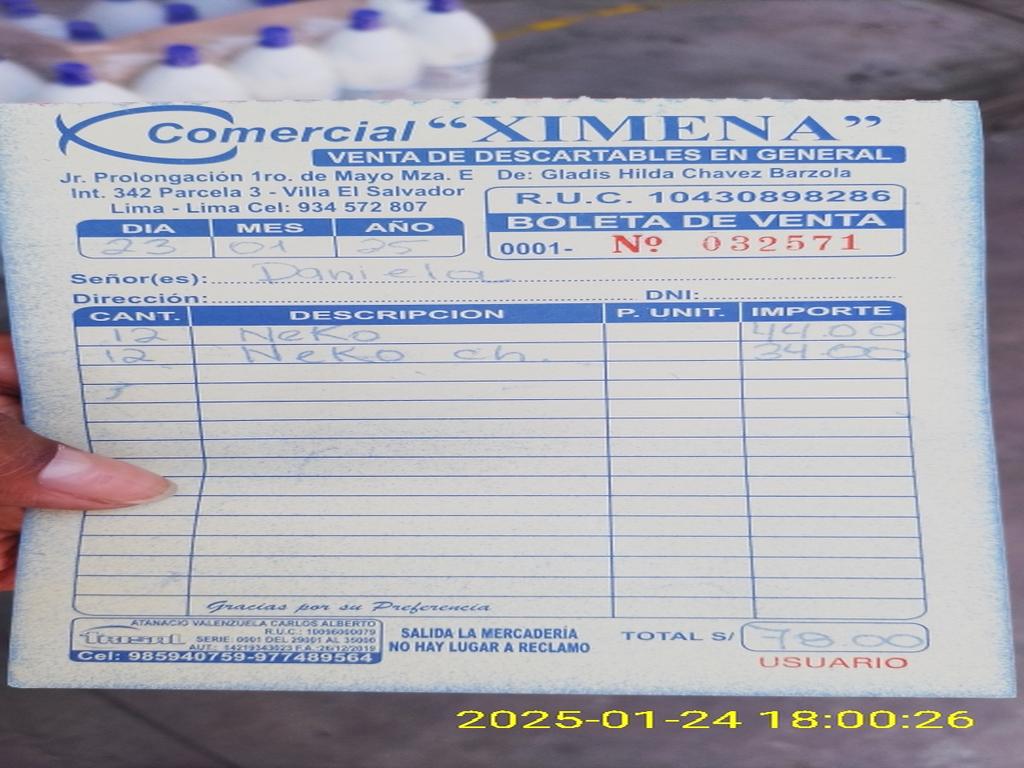 Comercial "XIMENA"
VENTA DE DESCARTABLES EN GENERAL
Jr. Prolongación 1ro. de Mayo Mza. E De: Gladis Hilda Chavez Barzola
Int. 342 Parcela 3 - Villa El Salvador
Lima - Lima Cel: 934 572 807
R.U.C. 10430898286
BOLETA DE VENTA
0001- Nº 032571
DIA MES AÑO
23 01 25
Señor(es): Daniela
Dirección: DNI:
CANT. DESCRIPCION P. UNIT. IMPORTE
12 Neko 44.00
12 Neko ch. 34.00
Gracias por su Preferencia
ATANACIO VALENZUELA CARLOS ALBERTO
R.U.C.:
SERIE: 0001 DEL 29001 AL 35000
AUT.: F.A.:26/12/2019
Cel: 985940759-977489564
SALIDA LA MERCADERÍA
NO HAY LUGAR A RECLAMO
TOTAL S/ 78.00
USUARIO
2025-01-24 18:00:26